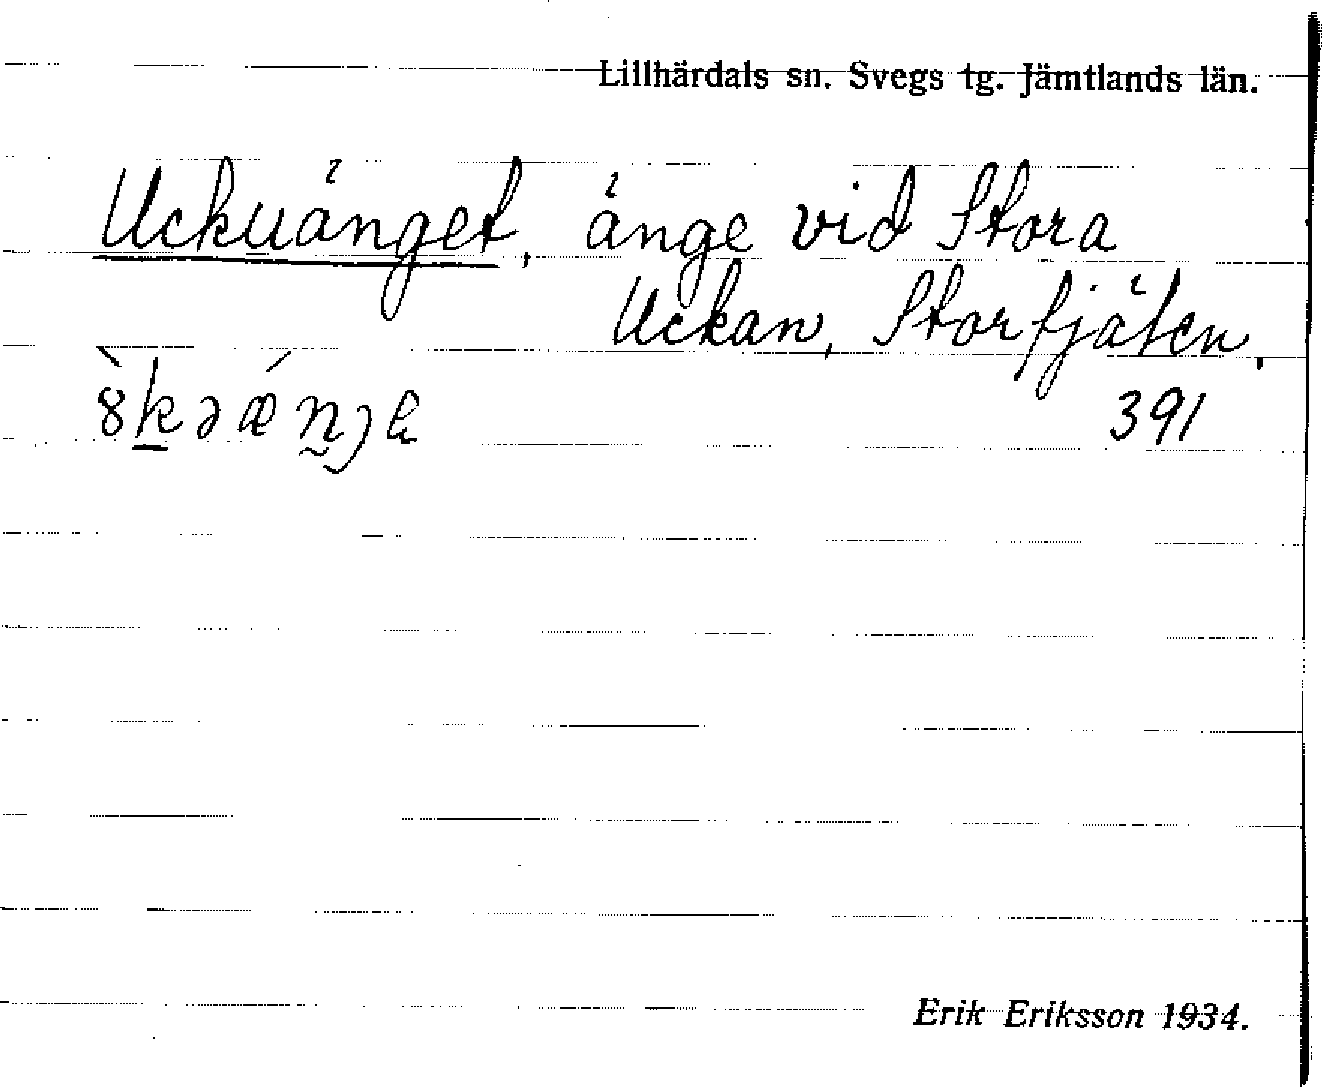 Lillhärdals sn. Svegs tg. Jämtlands län.
Uckuänget, änge vid Stora
Uckan, Storfjäten.
391
Erik Eriksson 1934.